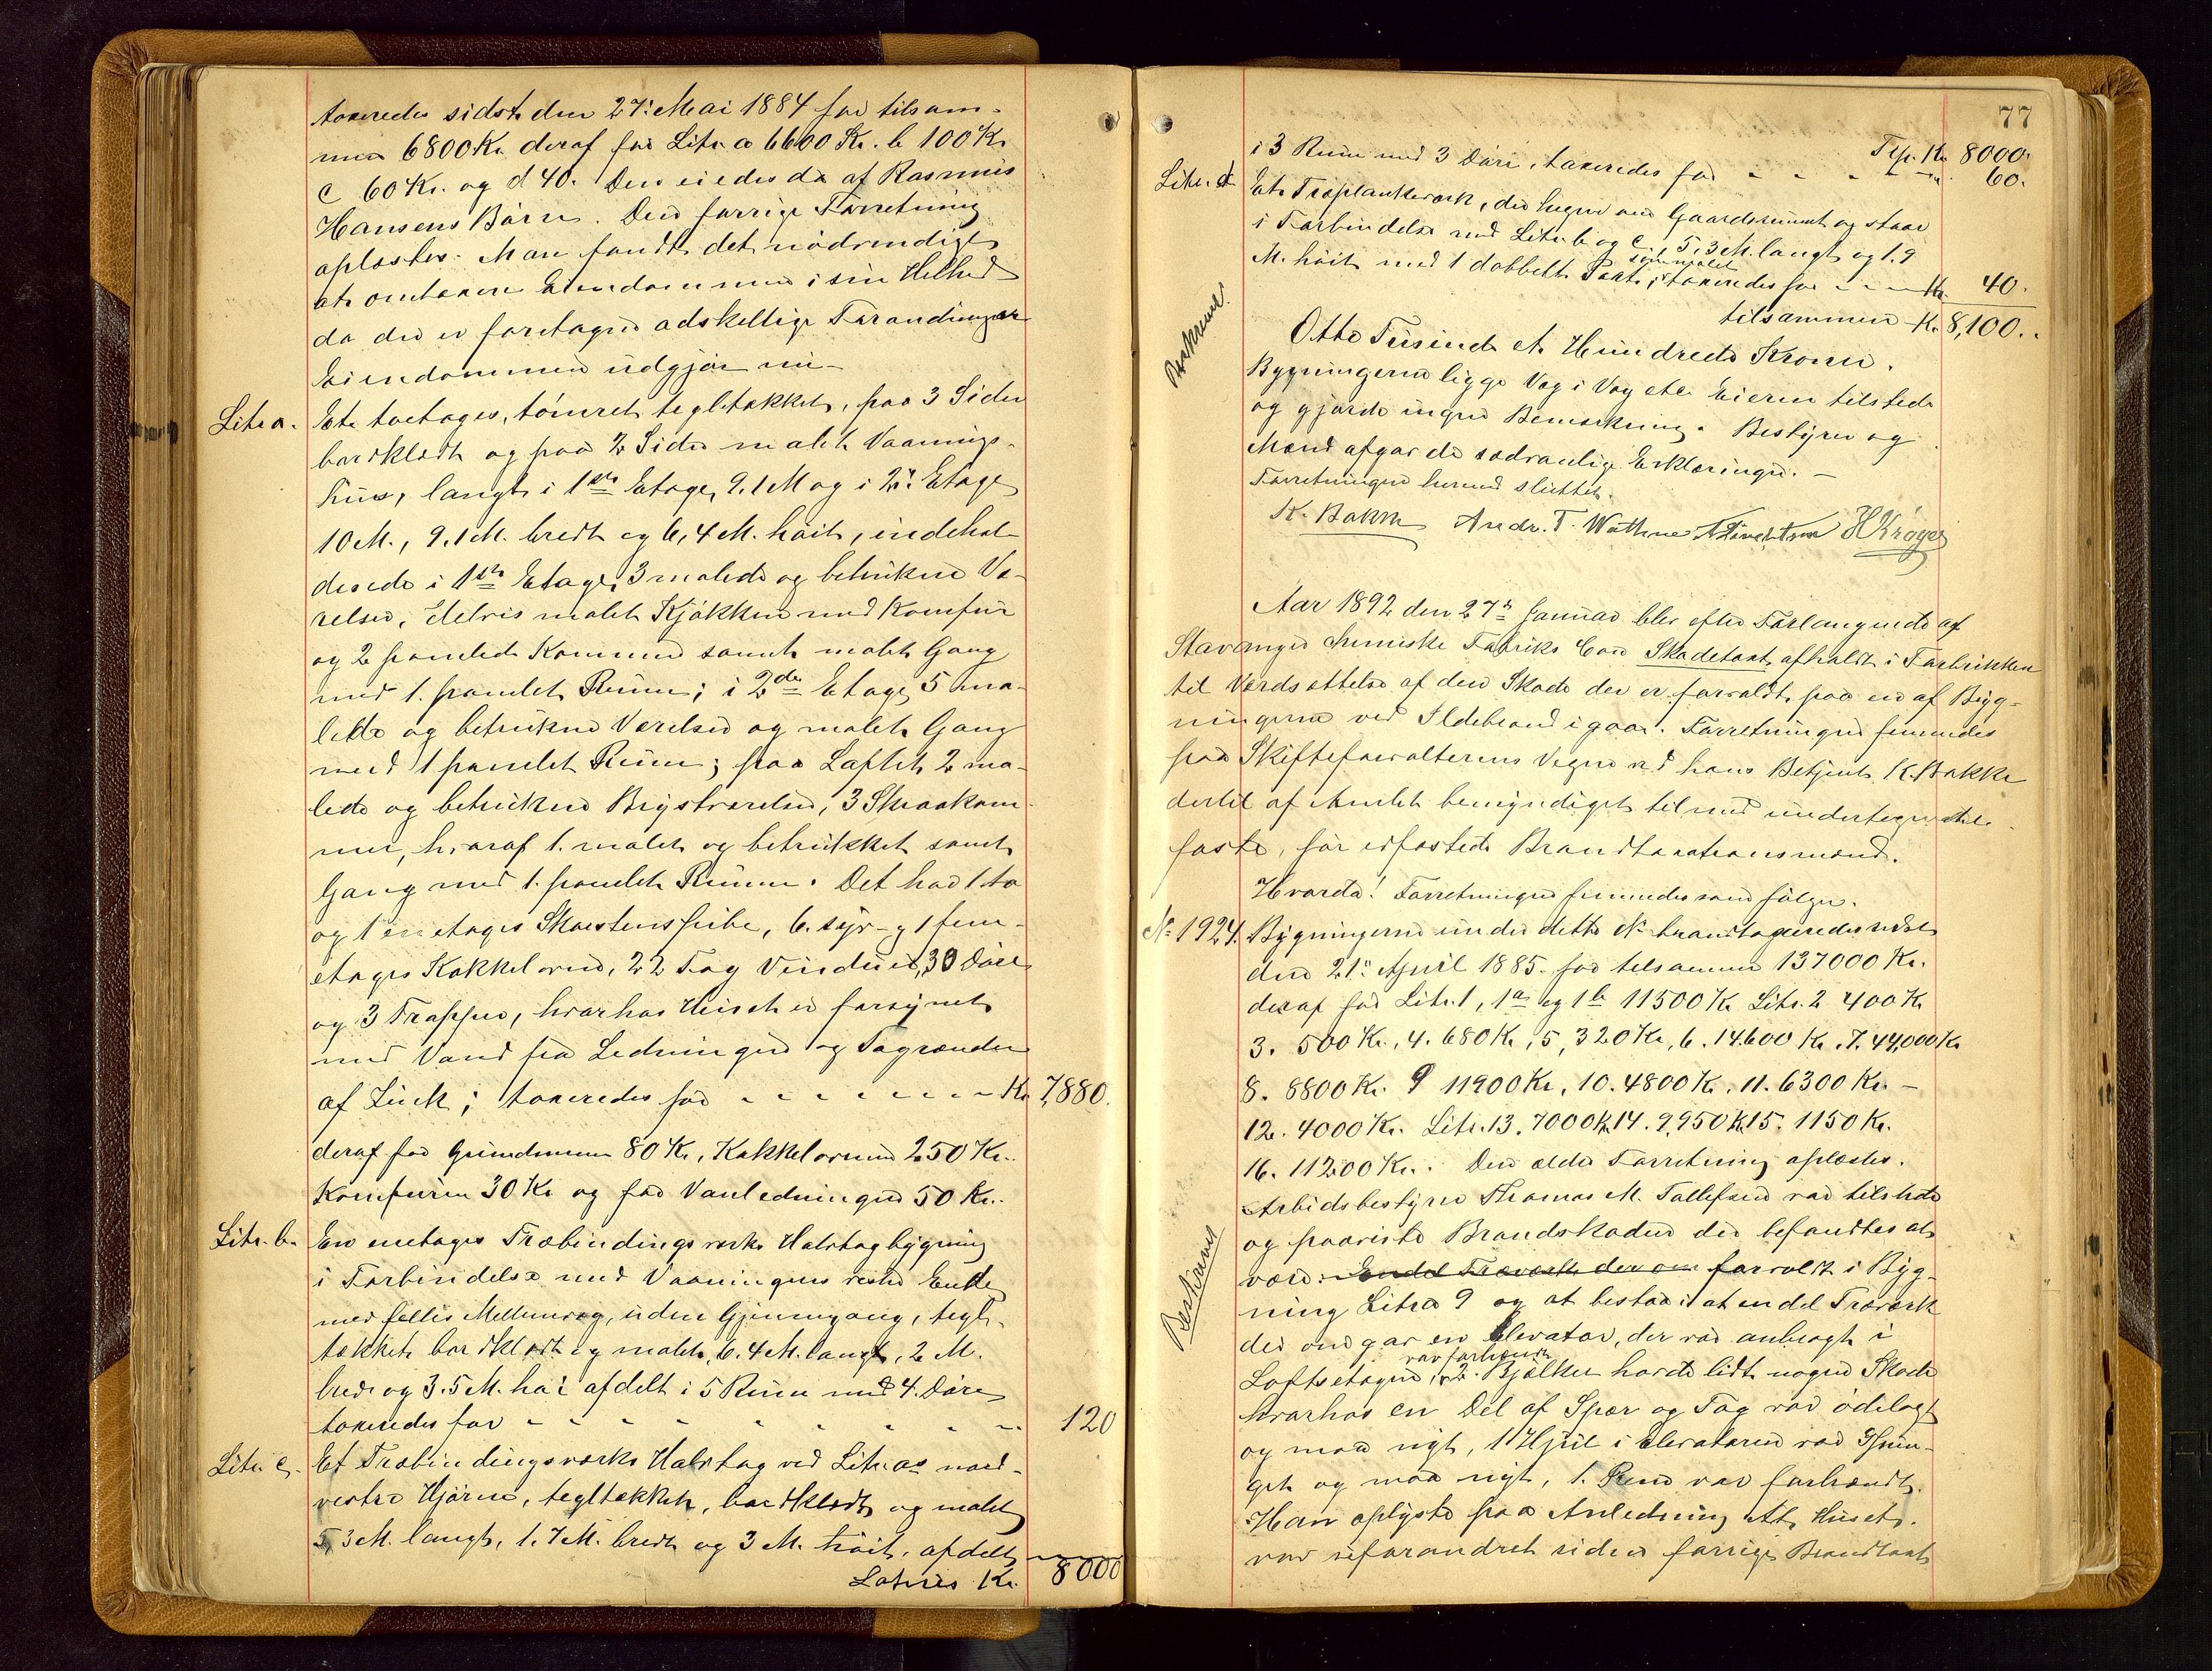 taxeredes sidst den 27: Mai 1884 for tilsam-
men 6800 Kr. deraf for Litr. a 6600 Kr. b 100 Kr.
c 60 Kr. og d 40. Den eiedes da af Rasmus
Hansens Børn. Den forrige Forretning
oplæstes. Man fandt det nødvendigt
at omtaxere Eiendommen i sin Helhed
da der er foretagen adskellige Forandringer
Eiendommen udgjør nu-
Litr a. Et toetages, tømret tegltækket, paa 3 Sider
bordklædt og paa 2 Sider malet Vaanings-
hus, langt i 1ste Etage, 9.1 M og i 2den Etage
10 M., 9.1 M. bredt og 6,4 M. høit, indehol-
dende i 1ste Etage, 3 malede og betrukne Væ-
relser, delvis malet Kjøkken med Komfur
og 2 panelede Kammer samt malet Gang
med 1. panelet Rum; i 2den Etage 5 ma-
lede og betrukne Værelser og malet Gang
med 1 panelet Rum; paa Loftet 2 ma-
lede og betrukne Brystværelser, 3 Skraakam-
mer, hvoraf 1. malet og betrukket samt
Gang med 1. panelet Rum. Det har 1 to
og 1 enetages Skorstenspibe, 6. syv- og 1 fem-
etages Kakkelovne, 22 Fag Vinduer, 30 Døre
og 3 Trapper, hvorhos Huset er forsynet
med Vand fra Ledningen og Tagrender
af Zink; taxeredes for - - - - - - - - Kr. 7,880.
deraf for Grundmuren 80 Kr., Kakkelovnene 250 Kr.
Komfuren 30 Kr og for Vanledningen 50 Kr.
Litr. b. En enetages Træbindingsverks Halvtagbygning
i Forbindelse med Vaaningens vestre Ende
med felles Mellemvæg, uden Gjennemgang, tegl-
tækket bordklædt og malet, 6.4 M. langt, 2 M.
bred og 3.5 M. høi afdelt i 5 Rum med 4. Døre
taxeredes for - - - - - - - - 120
Litr c. Et Træbindingsværks Halvtag ved Litr. as nord-
vestre Hjørne, tegltækket, bordklædt og malet
5,3 M. langt, 1.7 M. bredt og 3 M. høit, afdelt
Latus Kr. 8000
77
Tsp. Kr. 8000.
i 3 Rum med 3 Døre, taxeredes for - - - - 60.
Litr. d Et Træplankeverk, der hegner om Gaardsrummet og staar
i Forbindelse med Litr. b og c, 5,3 M. langt og 1.9
M. høit med 1 dobbelt Port, som malet, taxeredes for - - - Kr. 40.
tilsammen Kr. 8,100..
Beskreven.
Otte Tusinde et Hundrede Kroner.
Bygningerne ligge Væg i Væg etc. Eieren tilstede
og gjorde ingen Bemerkning. Bestyrer og
Mænd afgav de sædvanlige Erklæringer. -
Forretningen hermed sluttet.
K. Bakke Andr. T. Wathne HKrøger
Aar 1892 den 27de Januar blev efter Forlangende af
Stavanger chemiske Fabriks Comp Skadetaxt afholdt i Fabrikken
til Værdsættelse af den Skade der er forvoldt paa en af Byg-
ningerne ved Ildebrand igaar. Forretningen fremmedes
paa Skifteforvalterens Vegne ved hans Betjent K. Bakke
dertil af Amtet bemyndiget tilmed undertegnede
faste, før edfæstede Brandtaxationsmænd.
Hvorda! Forretningen fremmedes som følger.
No 1924. Bygningerne under dette No brandtaxeredes sidst
den 21de April 1885 for tilsammen 137000 Kr.
deraf for Litr. 1, 1a og 1b 11500 Kr Litr. 2 400 Kr
3. 500 Kr., 4. 680 Kr, 5, 320 Kr, 6. 14.600 Kr. 7. 44,000 Kr
8. 8800 Kr. 9 11900 Kr, 10. 4800 Kr. 11. 6300 Kr. -
12. 4000 Kr. Litr. 13. 7000 Kr 14. 9,950 Kr 15. 1150 Kr.
16. 11200 Kr. Den ældre Forretning oplæstes.
Beskreven
Arbeidsbestyrer Thomas M. Tollefsen var tilstede
og paaviste Brandskaden der befandtes at
være: Endel Træværk der om forvoldt i Byg-
ning Litra 9 og at bestaa i at en del Træværk
der omgav en Elevator, der var anbragt i
Loftsetagen, var forbrændt, 2. Bjælker havde lidt nogen Skade
hvorhos en Del af Spær og Tag var ødelagt
og maa nyt, 1 Hjul i Elevatoren var Sprun-
get og maa nyt, 1. Rem var forbrændt.
Han oplyste paa Anledning at Huset
var uforandret siden forrige Brandtaxt